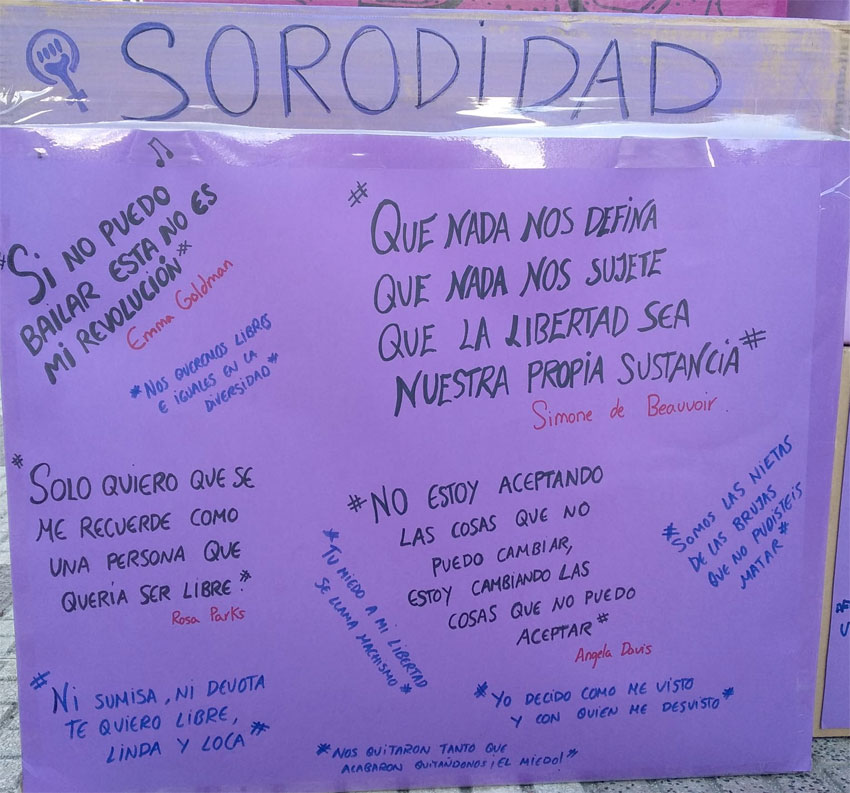 SORODIDAD
# SI NO PUEDO
BAILAR ESTA NO ES
MI REVOLUCIÓN #
Emma Goldman
# NOS QUEREMOS LIBRES
E IGUALES EN LA
DIVERSIDAD #
# QUE NADA NOS DEFINA
QUE NADA NOS SUJETE
QUE LA LIBERTAD SEA
NUESTRA PROPIA SUSTANCIA #
Simone de Beauvoir.
# SOLO QUIERO QUE SE
ME RECUERDE COMO
UNA PERSONA QUE
QUERÍA SER LIBRE. #
Rosa Parks
# TU MIEDO A MI LIBERTAD
SE LLAMA MACHISMO #
# NO ESTOY ACEPTANDO
LAS COSAS QUE NO
PUEDO CAMBIAR,
ESTOY CAMBIANDO LAS
COSAS QUE NO PUEDO
ACEPTAR #
Angela Davis
# SOMOS LAS NIETAS
DE LAS BRUJAS
QUE NO PUDISTEIS
MATAR #
# NI SUMISA, NI DEVOTA
TE QUIERO LIBRE,
LINDA Y LOCA #
# YO DECIDO COMO ME VISTO
Y CON QUIEN ME DESVISTO #
# NOS QUITARON TANTO QUE
ACABARON QUITÁNDONOS, EL MIEDO! #